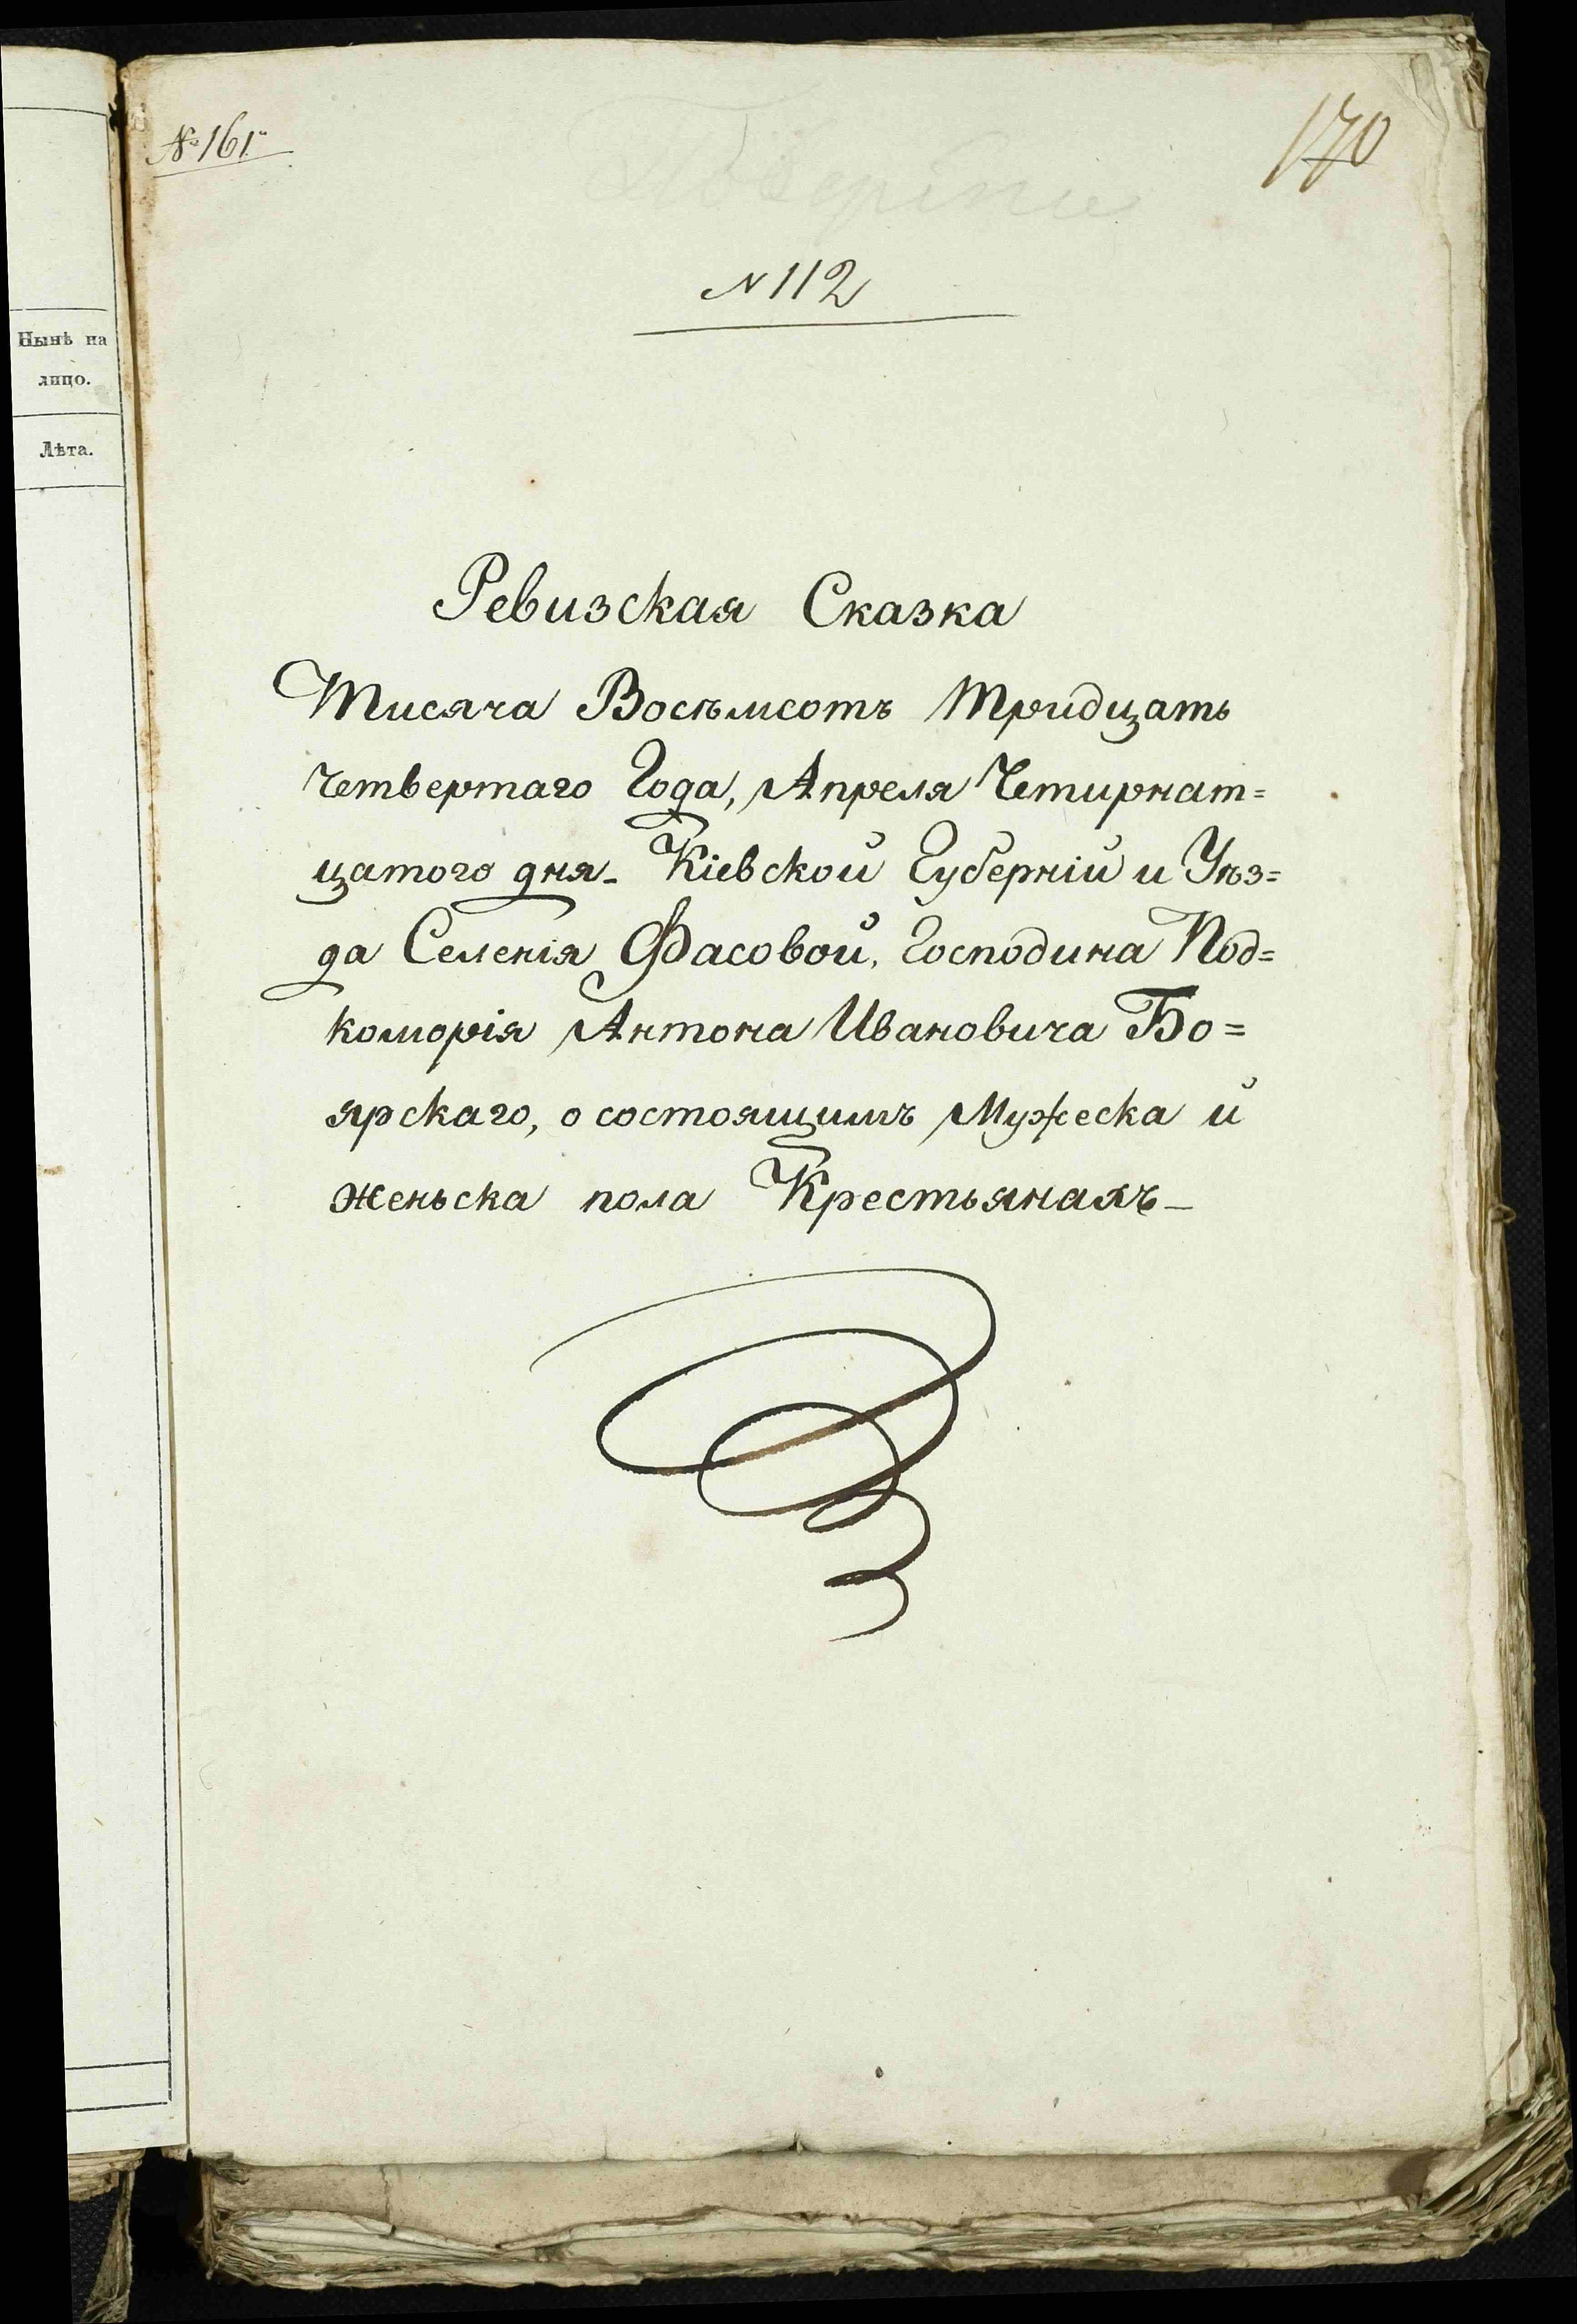 Нынѣ на
лицо.
Лѣта.
№ 161
170
N 112
Ревизская Сказка
Тисяча Восѣмсотъ Тридцать
Четвертаго Года, Апреля Четирнат=
цатого дня_ Кіевской Губерніи и Уѣз=
да Селенія Фасовой, Господина Под=
коморія Антона Ивановича Бо=
ярскаго, о состоящимъ Мужеска и
женьска пола Крестьянахъ_